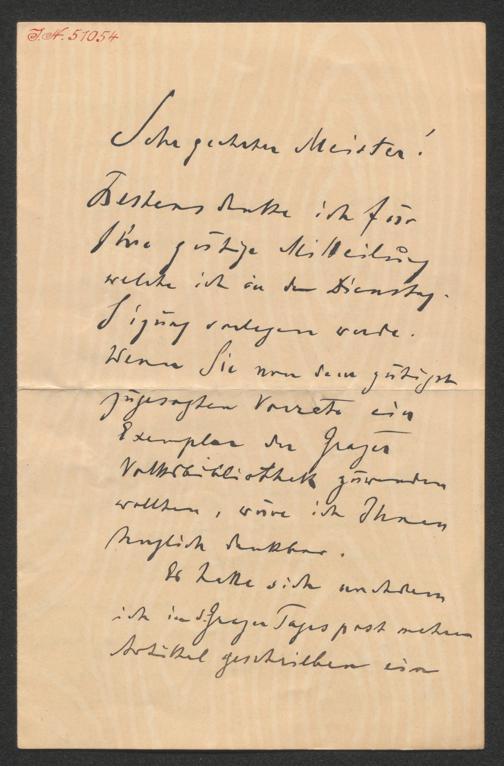 J. N. 51054
Sehr geehrter Meister!
Bestens danke ich für
Ihre gütige Mitteilung
welche ich in der Dienstag-
Sitzung vorlegen werde.
Wenn Sie von dem gütigst
zugesagten Vorrate ein
Exemplar der Grazer
Volksbibliothek zuwenden
wollten, wäre ich Ihnen
herzlich dankbar.
Es hatte sich nachdem
ich in d. Grazer Tagespost mehrere
Artikel geschrieben ein